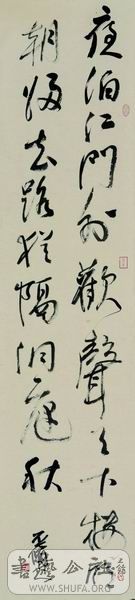 夜泊江門外歡聲月里樓明
朝歸去路猶隔洞庭秋
WWW.SHUFA.ORG